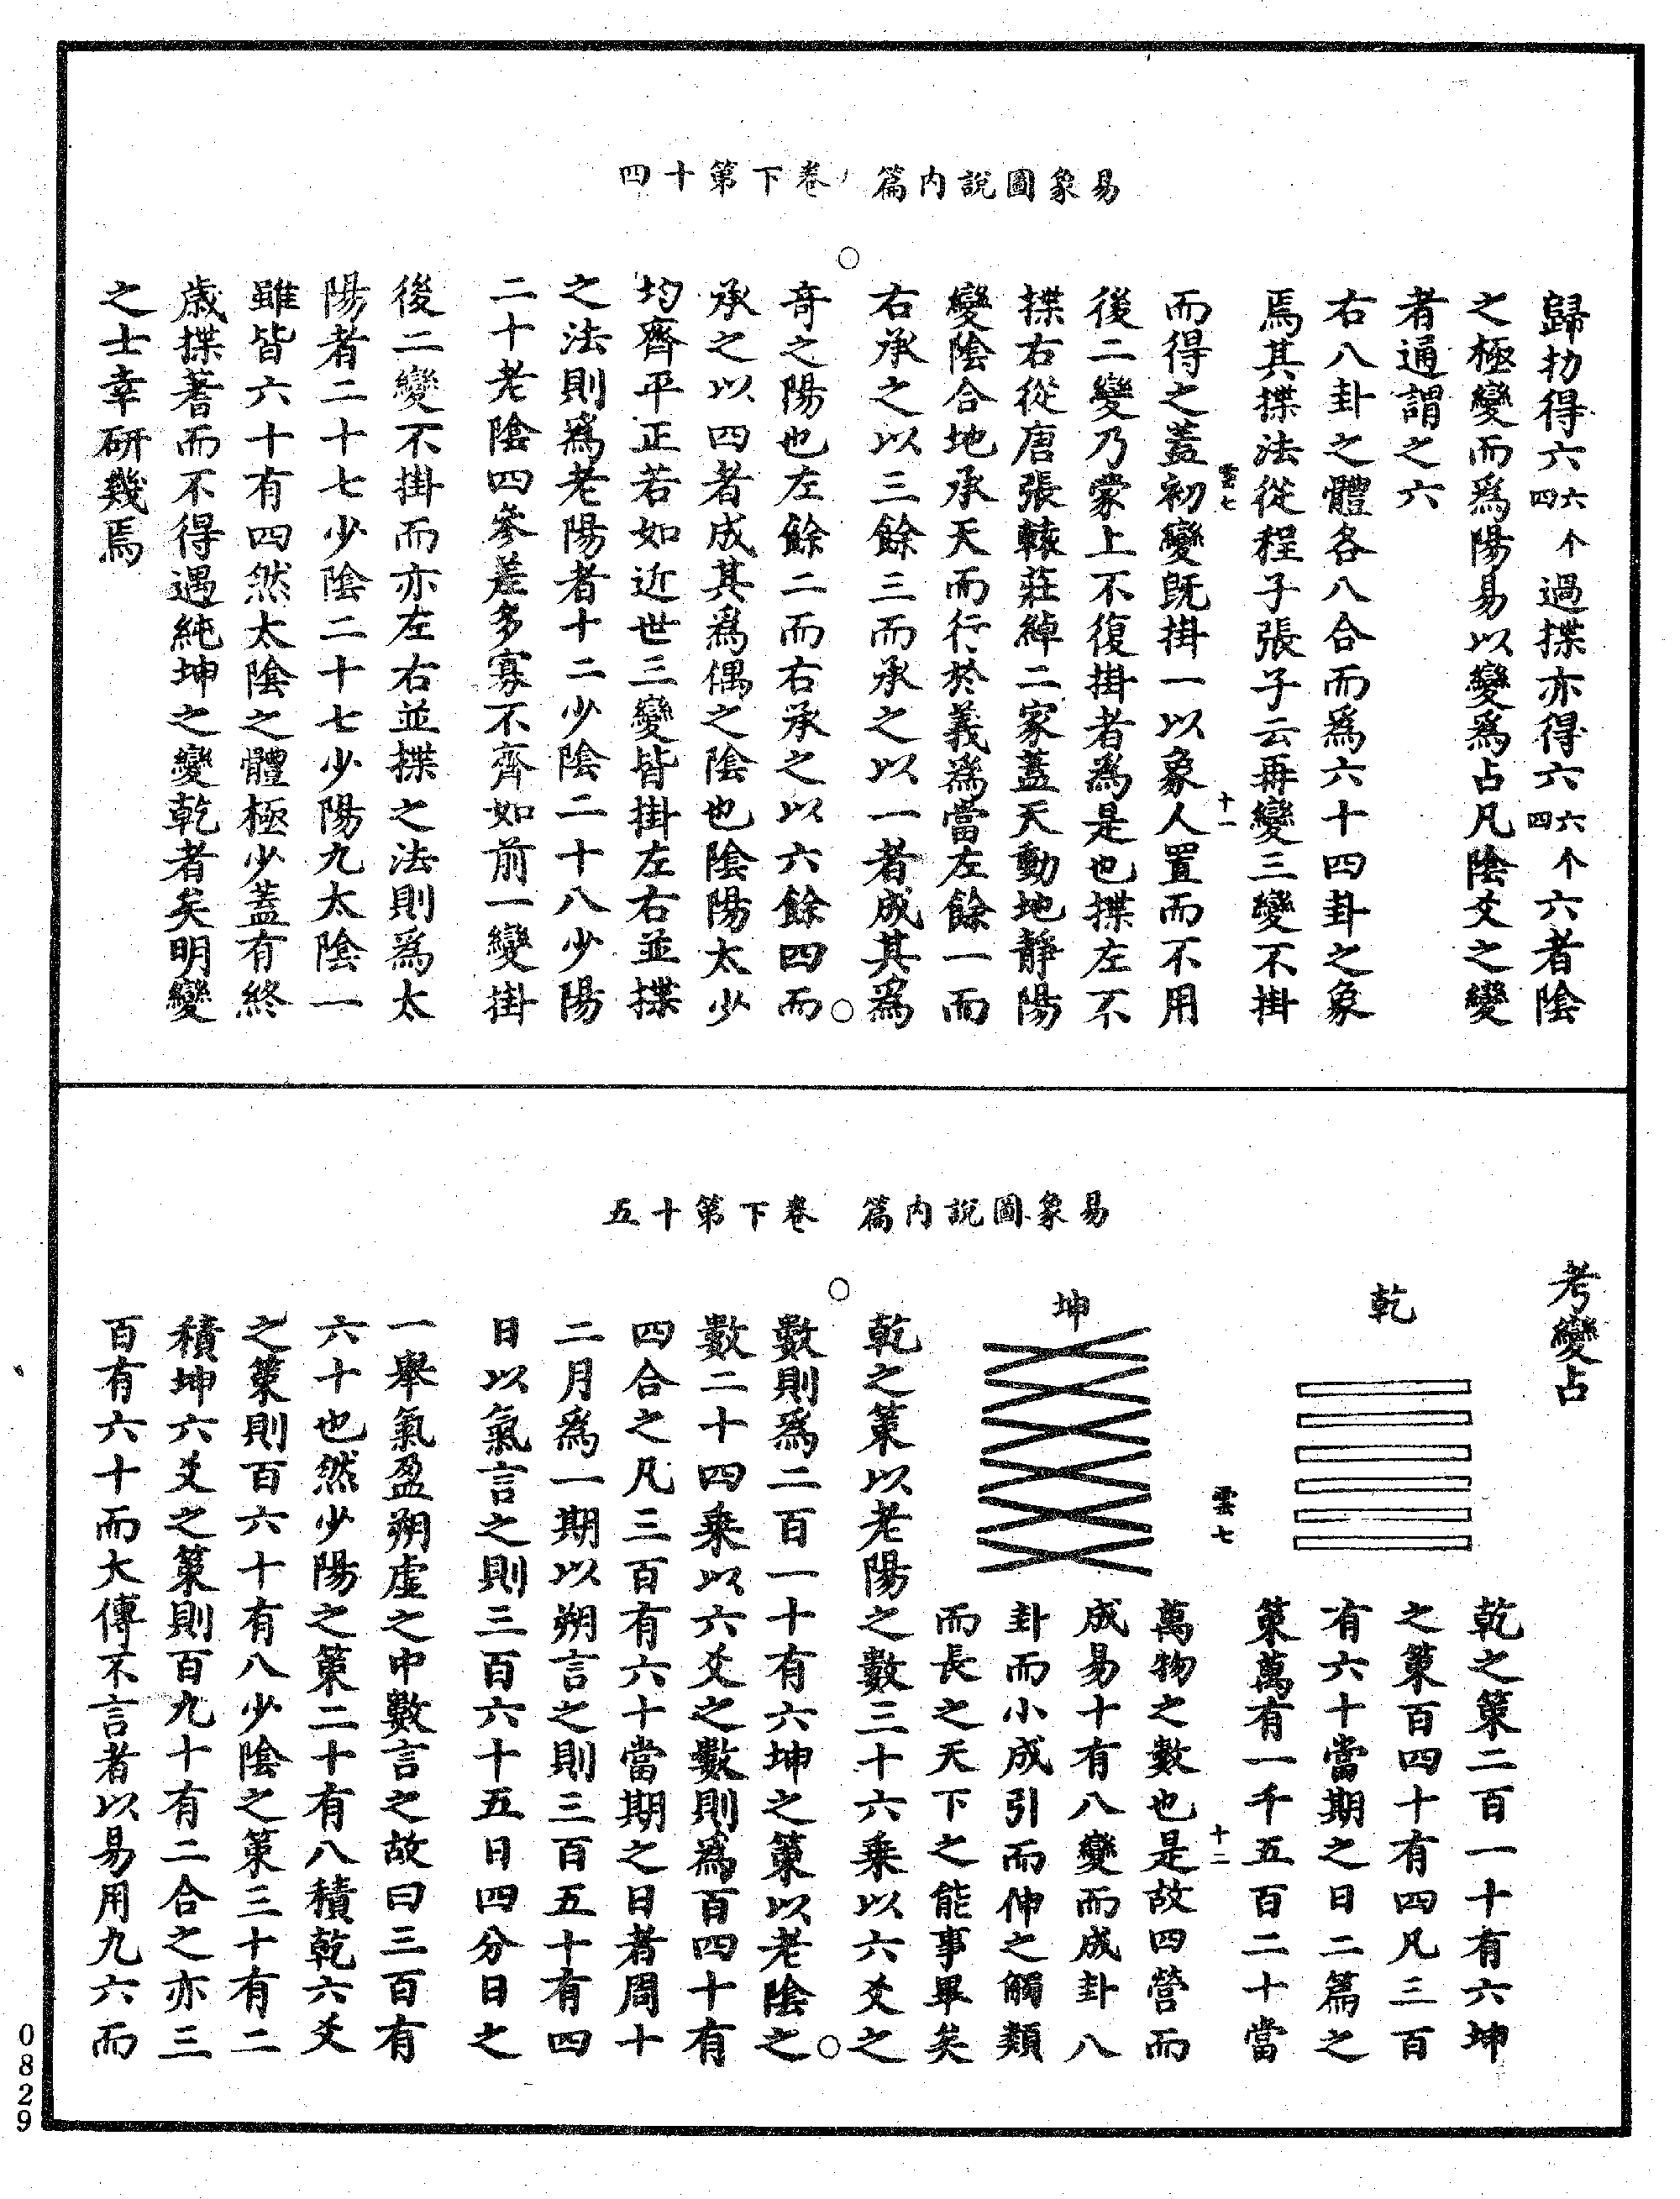 易象圖說內篇　卷下第十四
歸扐得六四六个過揲亦得六四六个六者陰
之極變而為陽易以變為占凡陰爻之變
者通謂之六
右八卦之體各八合而為六十四卦之象
焉其揲法從程子張子云再變三變不掛
雲七　十一
而得之蓋初變既掛一以象人置而不用
後二變乃蒙上不復掛者為是也揲左不
揲右從唐張轅莊綽二家蓋天動地靜陽
變陰合地承天而行於義為當左餘一而
右承之以三餘三而承之以一者成其為
奇之陽也左餘二而右承之以六餘四而
承之以四者成其為偶之陰也陰陽太少
均齊平正若如近世三變皆掛左右並揲
之法則為老陽者十二少陰二十八少陽
二十老陰四參差多寡不齊如前一變掛
後二變不掛而亦左右並揲之法則為太
陽者二十七少陰二十七少陽九太陰一
雖皆六十有四然太陰之體極少蓋有終
歲揲蓍而不得遇純坤之變乾者矣明變
之士幸研幾焉
易象圖說內篇　卷下第十五
考變占
乾
乾之策二百一十有六坤
之策百四十有四凡三百
有六十當期之日二篇之
策萬有一千五百二十當
雲七　十二
坤
萬物之數也是故四營而
成易十有八變而成卦八
卦而小成引而伸之觸類
而長之天下之能事畢矣
乾之策以老陽之數三十六乘以六爻之
數則為二百一十有六坤之策以老陰之
數二十四乘以六爻之數則為百四十有
四合之凡三百有六十當期之日者周十
二月為一期以朔言之則三百五十有四
日以氣言之則三百六十五日四分日之
一舉氣盈朔虛之中數言之故曰三百有
六十也然少陽之策二十有八積乾六爻
之策則百六十有八少陰之策三十有二
積坤六爻之策則百九十有二合之亦三
百有六十而大傳不言者以易用九六而
0829